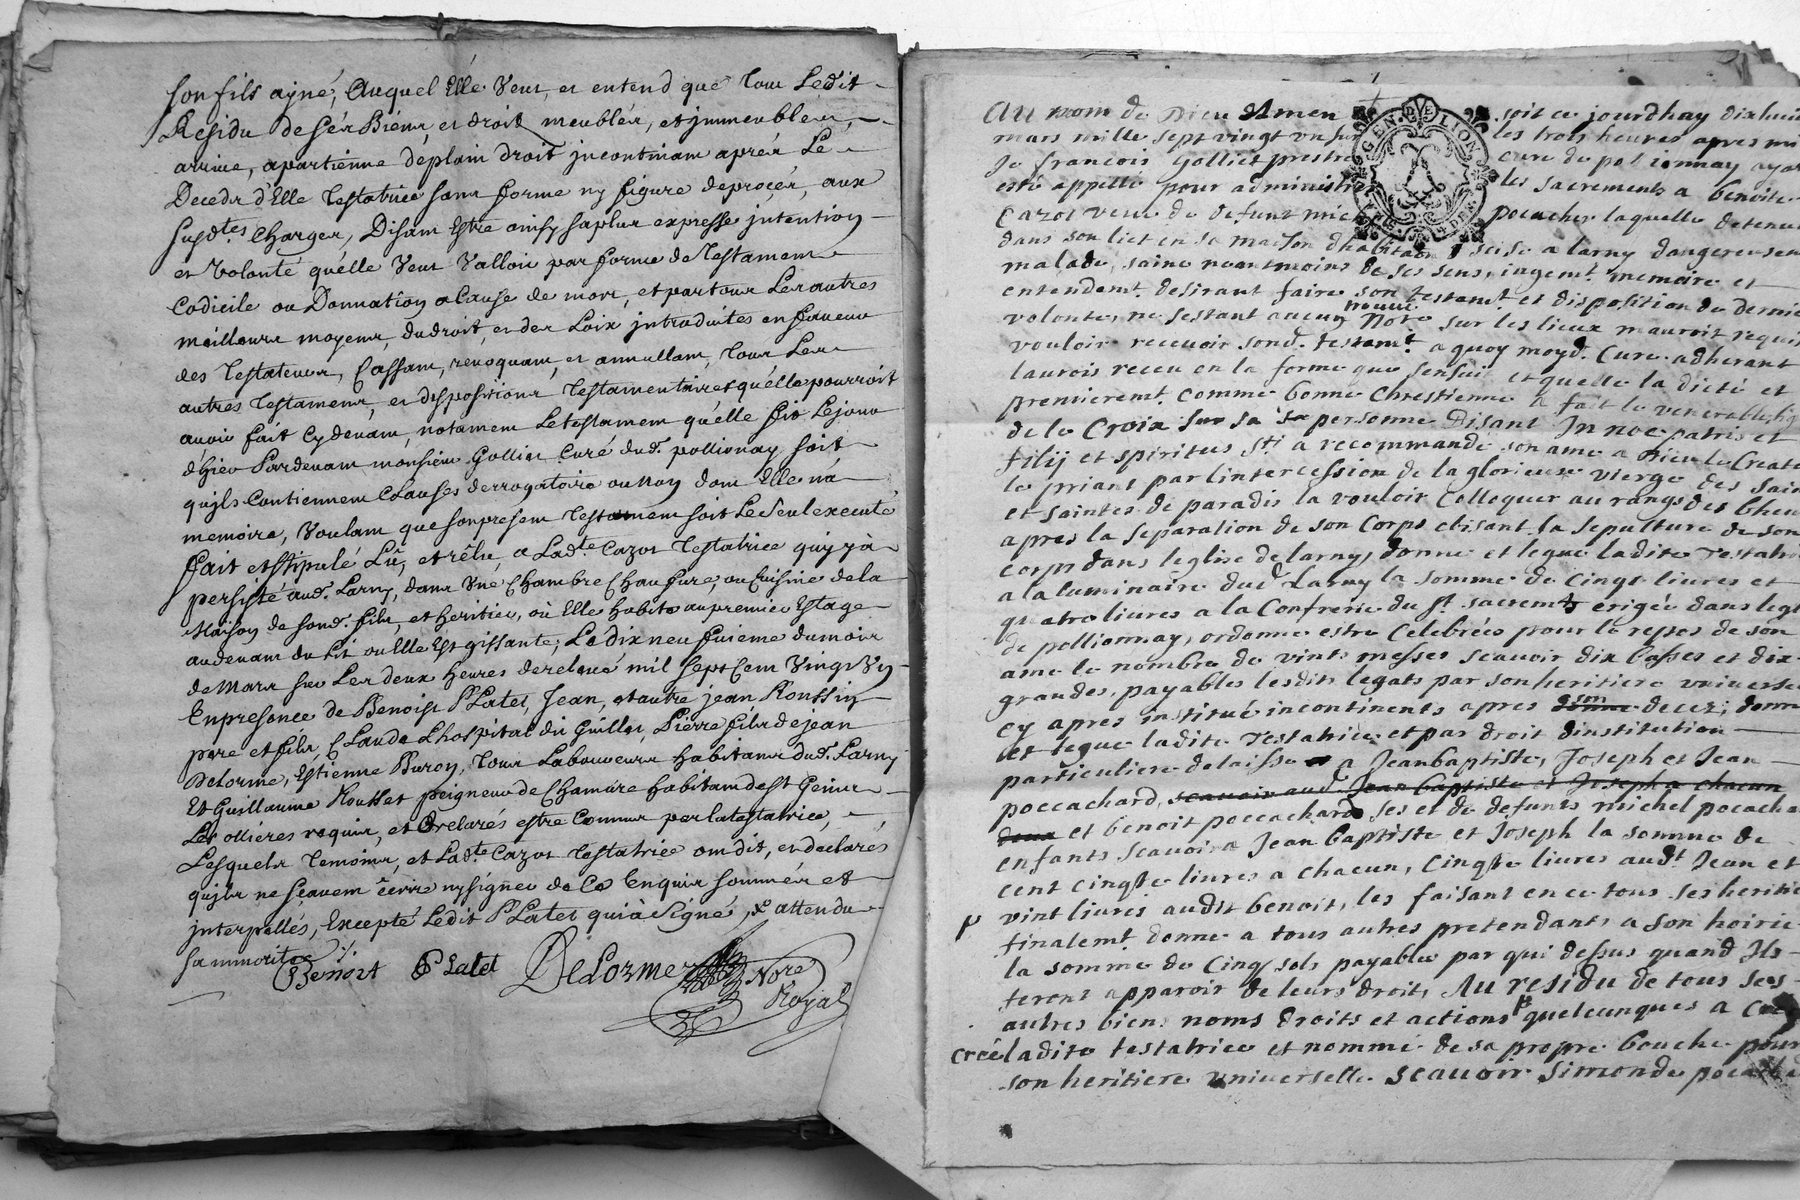 son fils ayné, Auquel Elle Veut, et entend que tout Ledit
Residu de ses Biens, et droits meubles, et jmmeubles,
arrive, apartienne deplain droit jncontinant aprés Le
Decedz d'Elle Testatrice sans forme ny figure deprocés, aux
susdtes Charges, Disant Estre ainsy saplus expresse jntention
et Volonté qu'elle Veut Valloir par forme de Testament
Codicile ou Donnation a Cause de mort, et partous Les autres
meilleurs moyens, dudroit, et des Loix jntroduites en faveur
des Testateurs, Cassant, revoquant, et annullant, tous Les
autres Testaments, et dispositions Testamentaires qu'elle pourroit
avoir fait Cydevant, notament Letestament qu'elle fit Lejour
d'hier Pardevant monsieur Gollier Curé dud. pollionay soit
qu'jls Contiennent Clauses derrogatoire ou non dont Elle n'a
memoire, Voulant que sonpresent Testament soit Le seul executé
fait et stipulé Lû, et relû, a Ladte Cazot Testatrice quj y à
persisté aud. Larny, dans Une Chambre Chaufure, ou Cuisine dela
Maison de sond. fils, et heritier, où Elle habite au premier Estage
audevant du Lit ou Elle Est gissante, Le dix neufuieme dumois
de Mars sur Les deux heures derelevé mil sept Cent Vingt Un
Enpresence de Benoist Platet, Jean, et autre jean Roussin
pere et fils, Claude Lhospital dit Guillot, Pierre fils de jean
Delorme, Estienne Buron, tous Laboureurs habitans dud. Larny
Et Guillaume Rousset peigneur de Chamure habitant de st Genis
Les ollieres requis, et Declarés estre Connus par latestatrice,
Lesquels temoins, et Ladte Cazot Testatrice ont dit, et declarés
qujls ne sçavent êcrire ny signer de Ce Enquis sommés et
jnterpellés, Excepté Ledit Platet qui à signé, & attendu
sa minorité
Benoist Platet DeLorme Nore
Royal
Au nom de Dieu Amen soit ce jourdhuy dixhuit
mars mille sept vingt un sur les trois heures apres mi
Je francois Golliet prestre cure de pollionnay ayant
esté appellé pour administrer les sacrements a benoite
Cazot veuve de defunt michel pocachar laquelle detenue
dans son lict en sa maison dhabitaon size a larny dangereusem
malade, saine neantmoins de ses sens, iugemt memoire et
entendemt desirant faire son testamt et disposition de dernie
volonte, ne sestant aucun trouvé Note sur les lieux mauroit requis
vouloir recevoir sond. testamt a quoy moyd. Cure adherant
laurois receu en la forme que sensuit et quelle la dicté et
premieremt comme bonne Chrestienne a fait le venerable sig
de la Croix sur sa personne Disant In noe patris et
filij et spiritus sti a recommandé son ame a Dieu le Creat
le priant par lintercession de la glorieuse vierge des sain
et saintes de paradis la vouloir Colloquer au rangs des bheu
apres la separation de son Corps elisant la sepulture de son
corps dans leglise de larny, donne et legue ladite testatri
a la luminaire dud Larny la somme de cinqt livres et
quatre livres a la Confrerie du st sacremt erigée dans legl
de pollionnay, ordonne estre Celebrées pour le repos de son
ame le nombre de vint messes scavoir dix basses et dix
grandes, payables lesdits legats par son heritiere universe
cy apres institué incontinents apres son decez, donne
et legue ladite testatrice et par droit dinstitution
particuliere delaisse a Jeanbaptiste, Joseph et Jean
poccachard, scavoir aud. Jean baptiste et Joseph a chacun
deux et benoit poccachard ses et de defunts michel pocacha
enfants scavoir a Jean baptiste et Joseph la somme de
cent cinqte livres a chacun, cinqte livres audt Jean et
vint livres audit benoit, les faisant en ce tous ses heritie
finalemt donne a tous autres pretendants a son hoirie
la somme de Cinq sols payable par qui dessus quand Ils
feront apparoir de leurs droit, Au residu de tous ses
autres biens noms droits et actions quelcunques a
creé ladite testatrice et nommé de sa propre bouche pour
son heritiere universelle scavoir Simonde
GEN DE LION